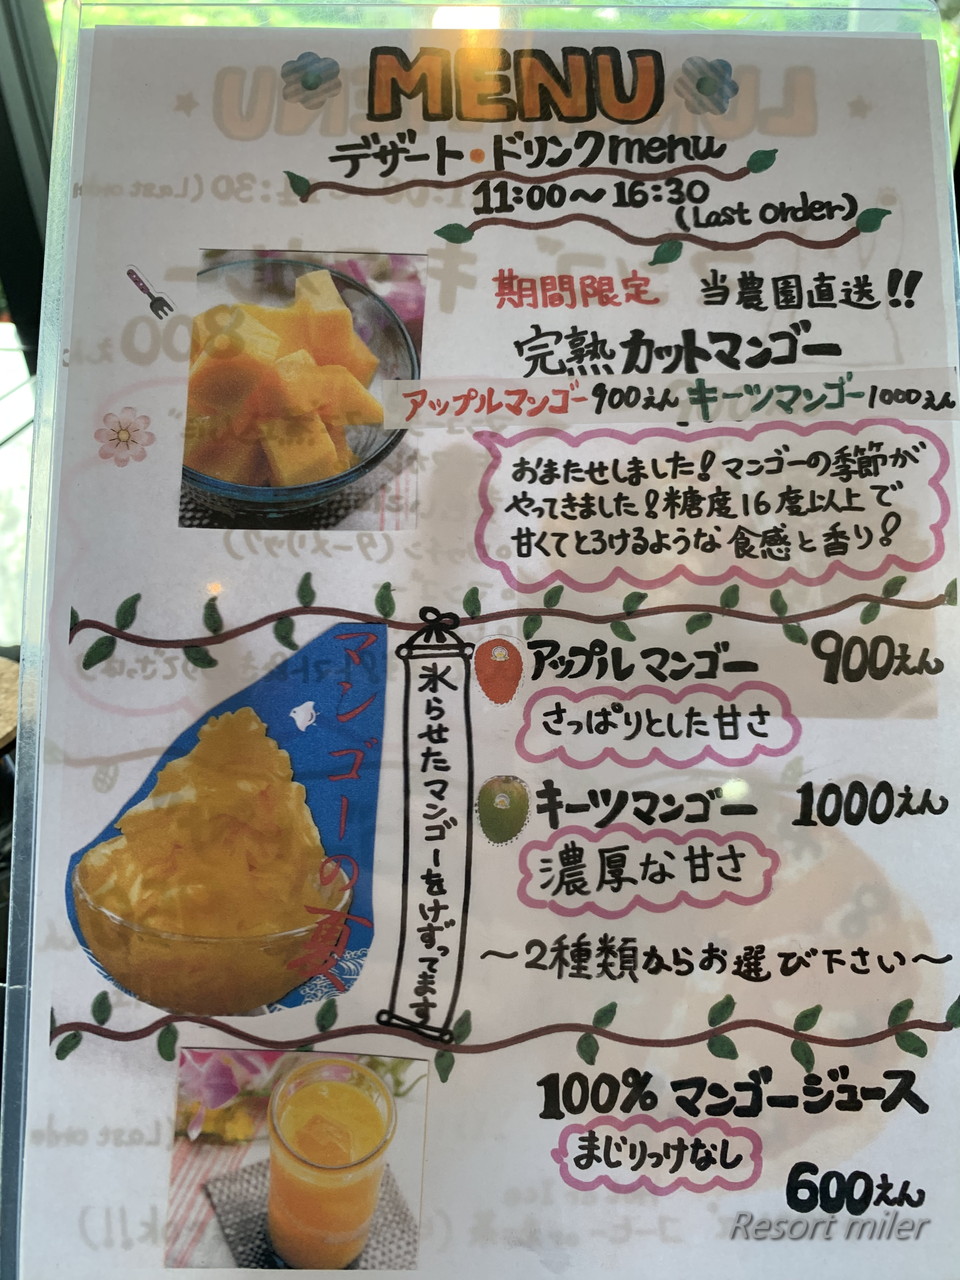 MENU
デザート・ドリンクmenu
11:00～16:30
(Last order)
期間限定 当農園直送!!
完熟カットマンゴー
アップルマンゴー900えん キーツマンゴー1000えん
おまたせしました!マンゴーの季節が
やってきました!糖度16度以上で
甘くてとろけるような食感と香り!
マンゴーの夏
氷らせたマンゴーをけずってます
アップルマンゴー 900えん
さっぱりとした甘さ
キーツマンゴー 1000えん
濃厚な甘さ
～2種類からお選び下さい～
100% マンゴージュース
まじりっけなし
600えん
Resort miler